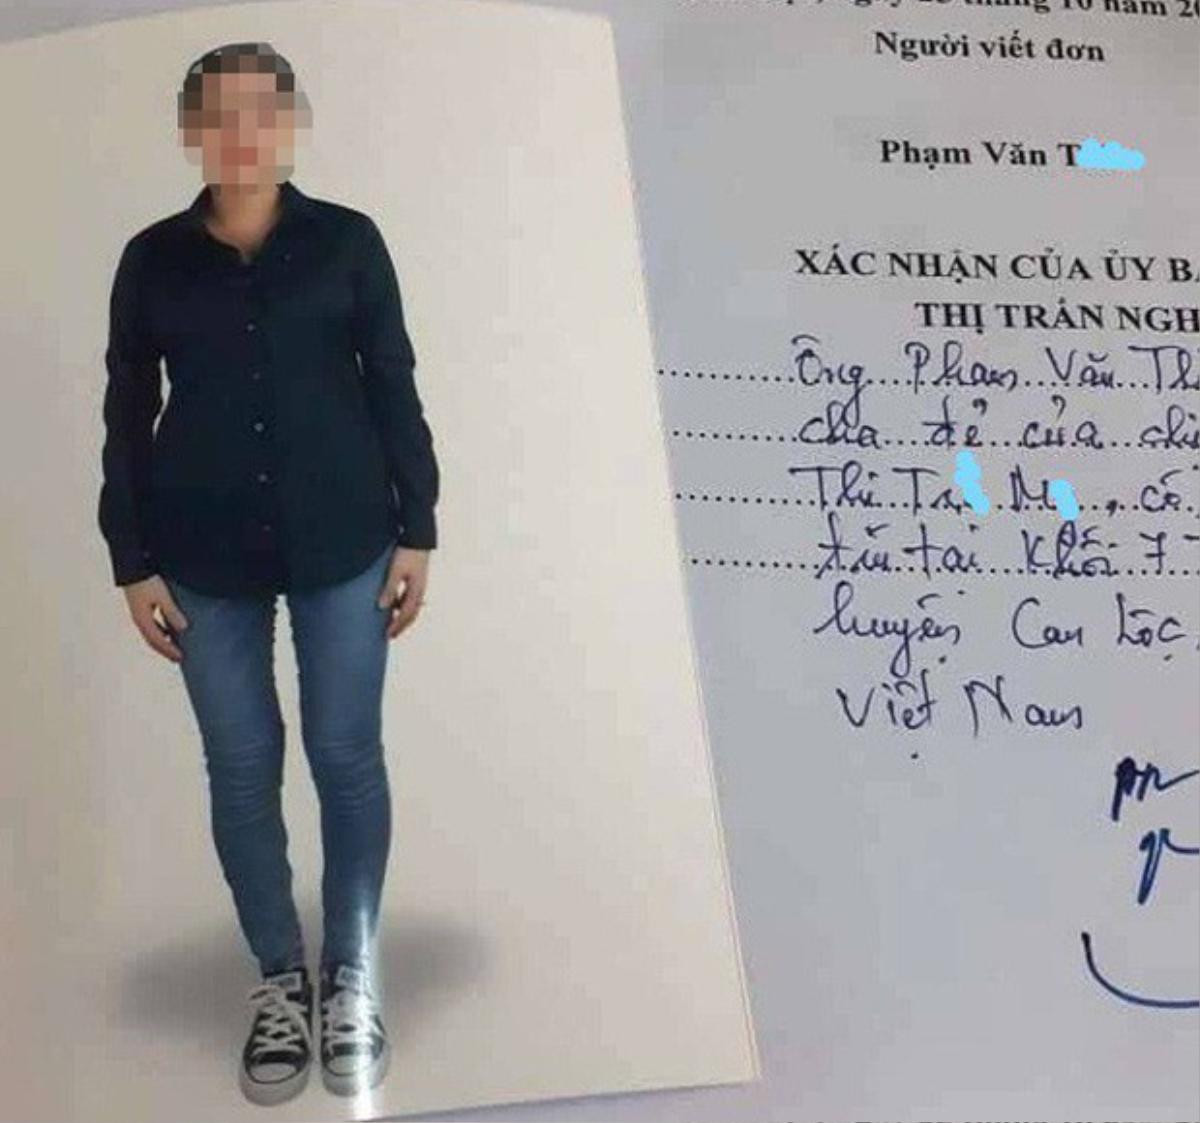 tháng 10 năm 20
Người viết đơn
Phạm Văn T
XÁC NHẬN CỦA ỦY BA
THỊ TRẤN NGH
Ông Phạm Văn Th
cha đẻ của chị
Thị T M , có
tại Khối 7
huyện Can Lộc,
Việt Nam